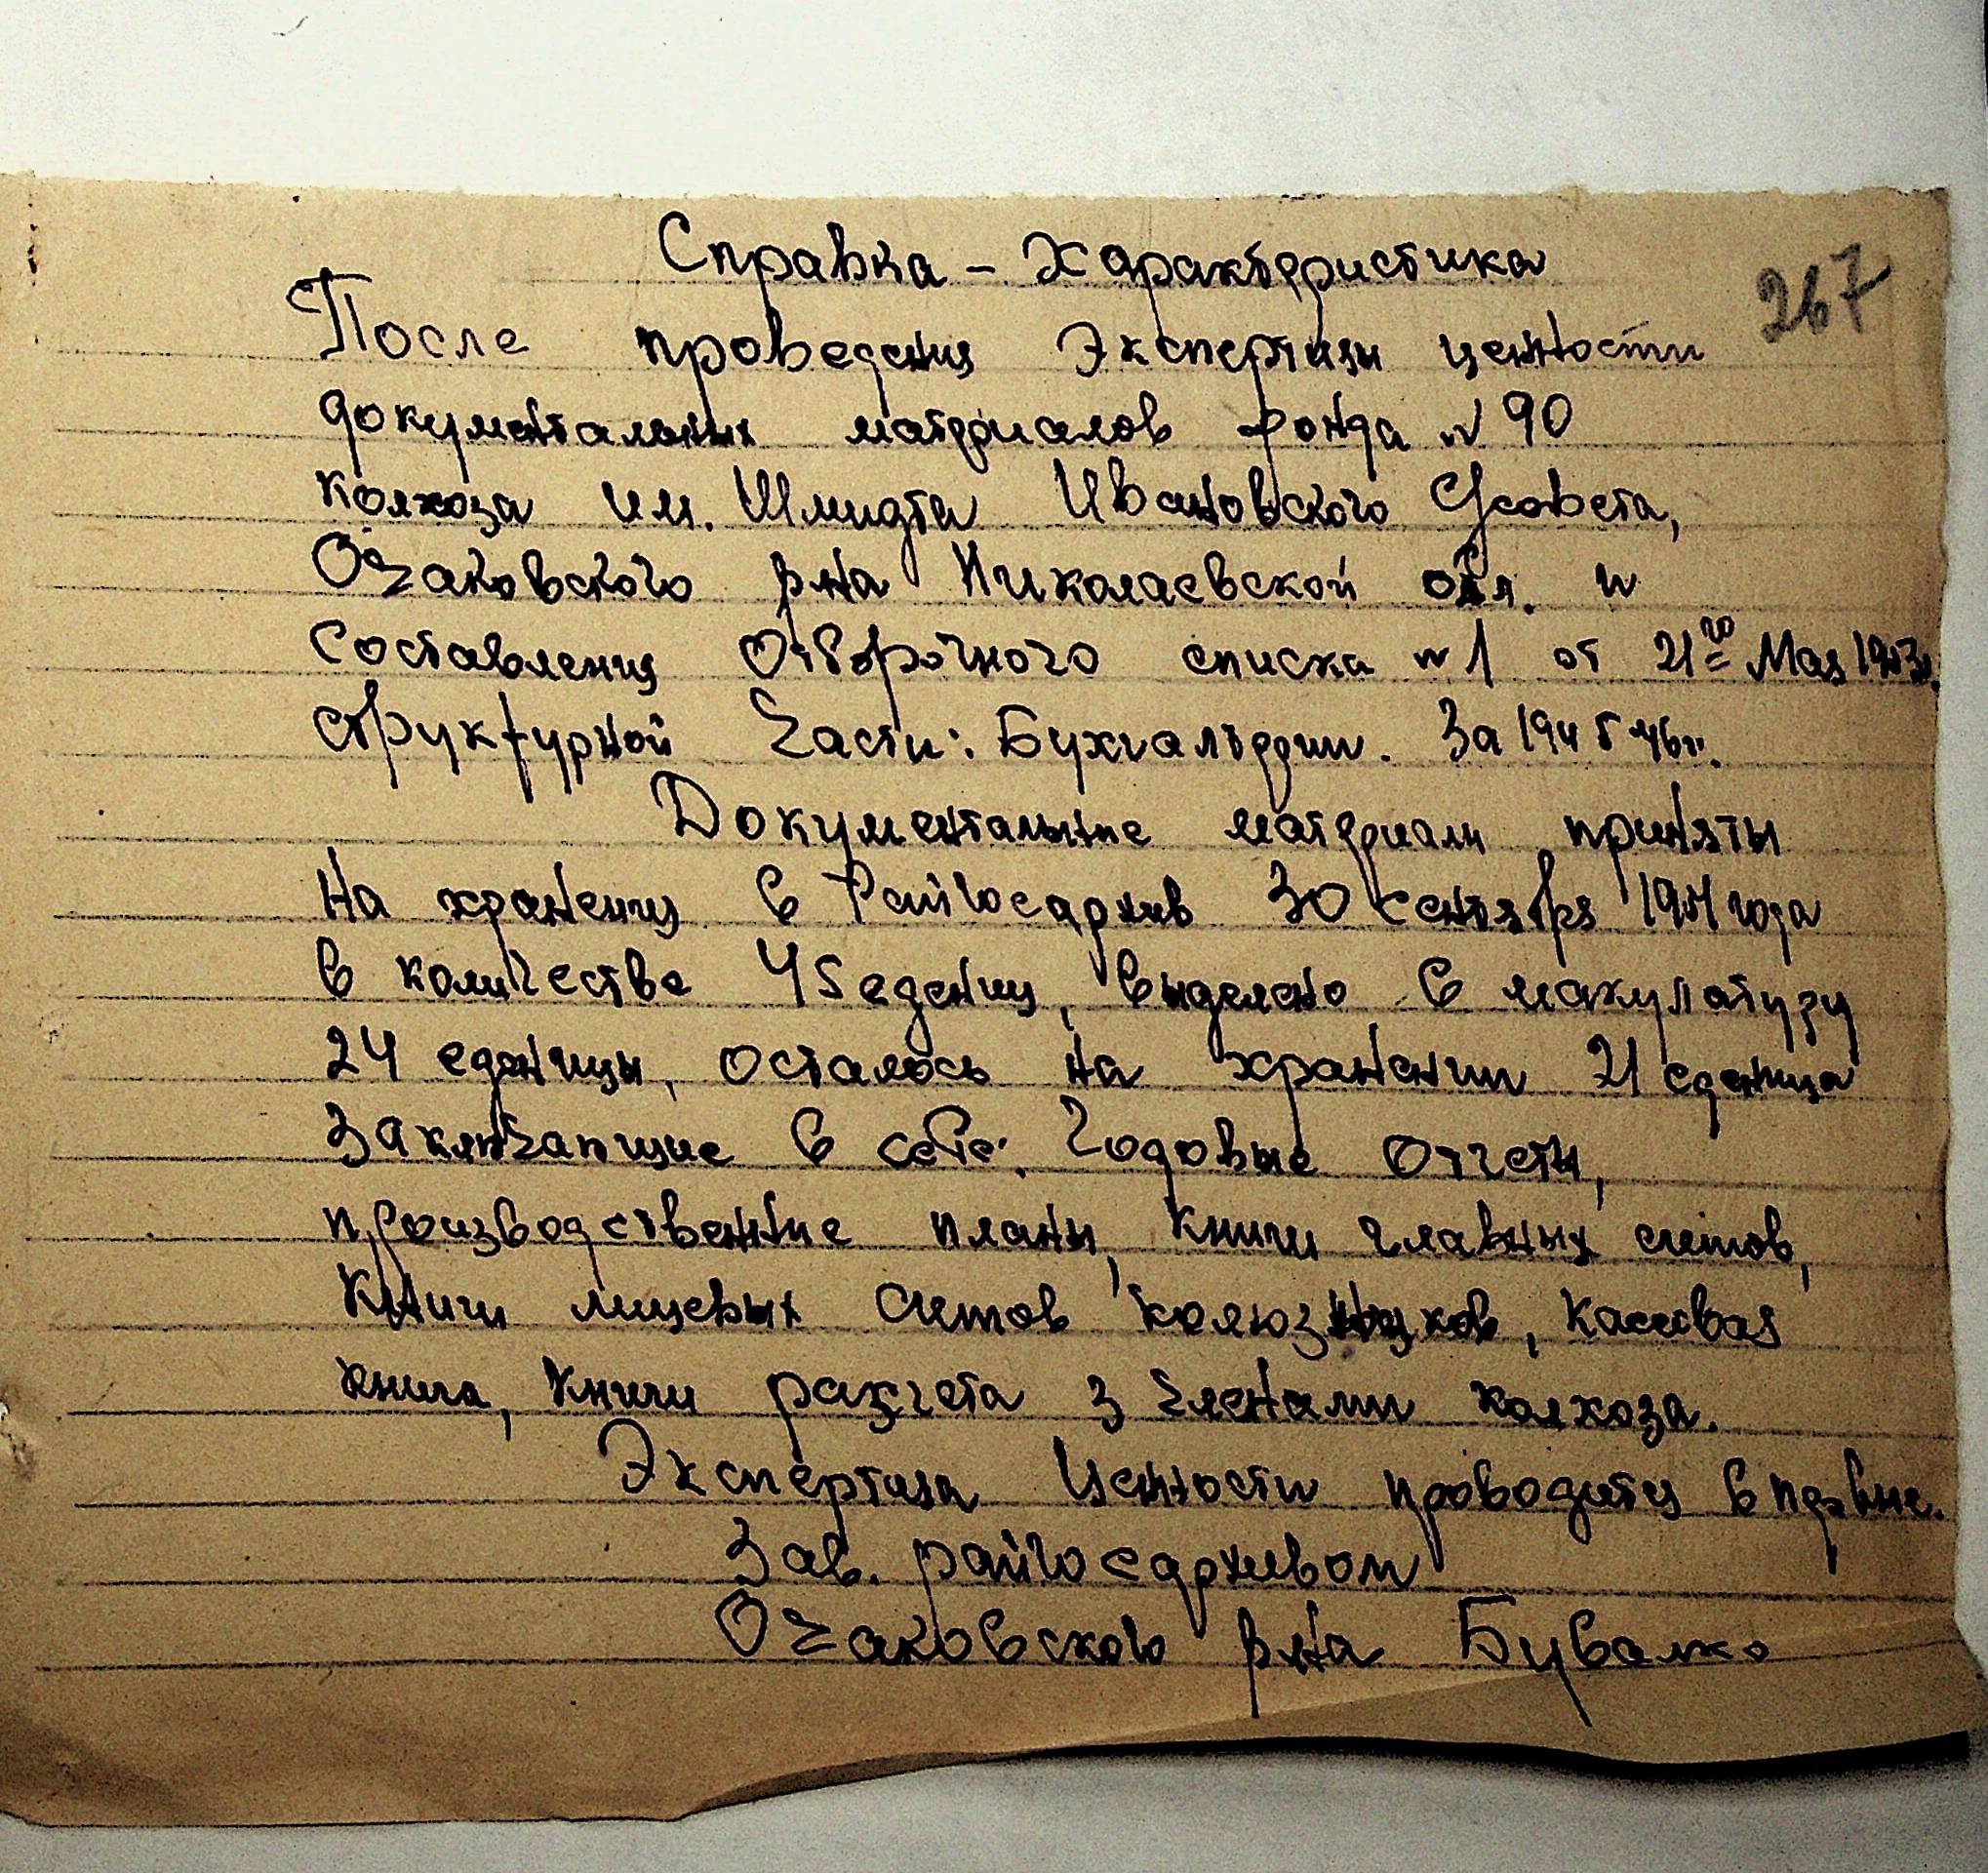 Справка – Характеристика
267
После проведения Экспертизы ценности
документальных материалов фонда № 90
колхоза им. Шмидта Ивановского С/совета,
Очаковского р-на Николаевской обл. и
составления Отборочного списка № 1 от 21го Мая
структурной Части: Бухгалтерии. За 1945-46гг.
Документальные материалы приняты
на хранения в Райгосархив 30 сентября года
в количестве 45 едениц, выделено в макулатуру
24 еденицы, осталось на хранении 21 еденица
Заключающие в себе: Годовые Отчеты,
производственные планы, книги главных счетов,
Книги лицевых Счетов колхозников, Кассовая
книга, книги разчета з Членами колхоза.
Экспертиза Ценности проводится в первые.
Зав. райгосархивом
Очаковского р-на Бувалко